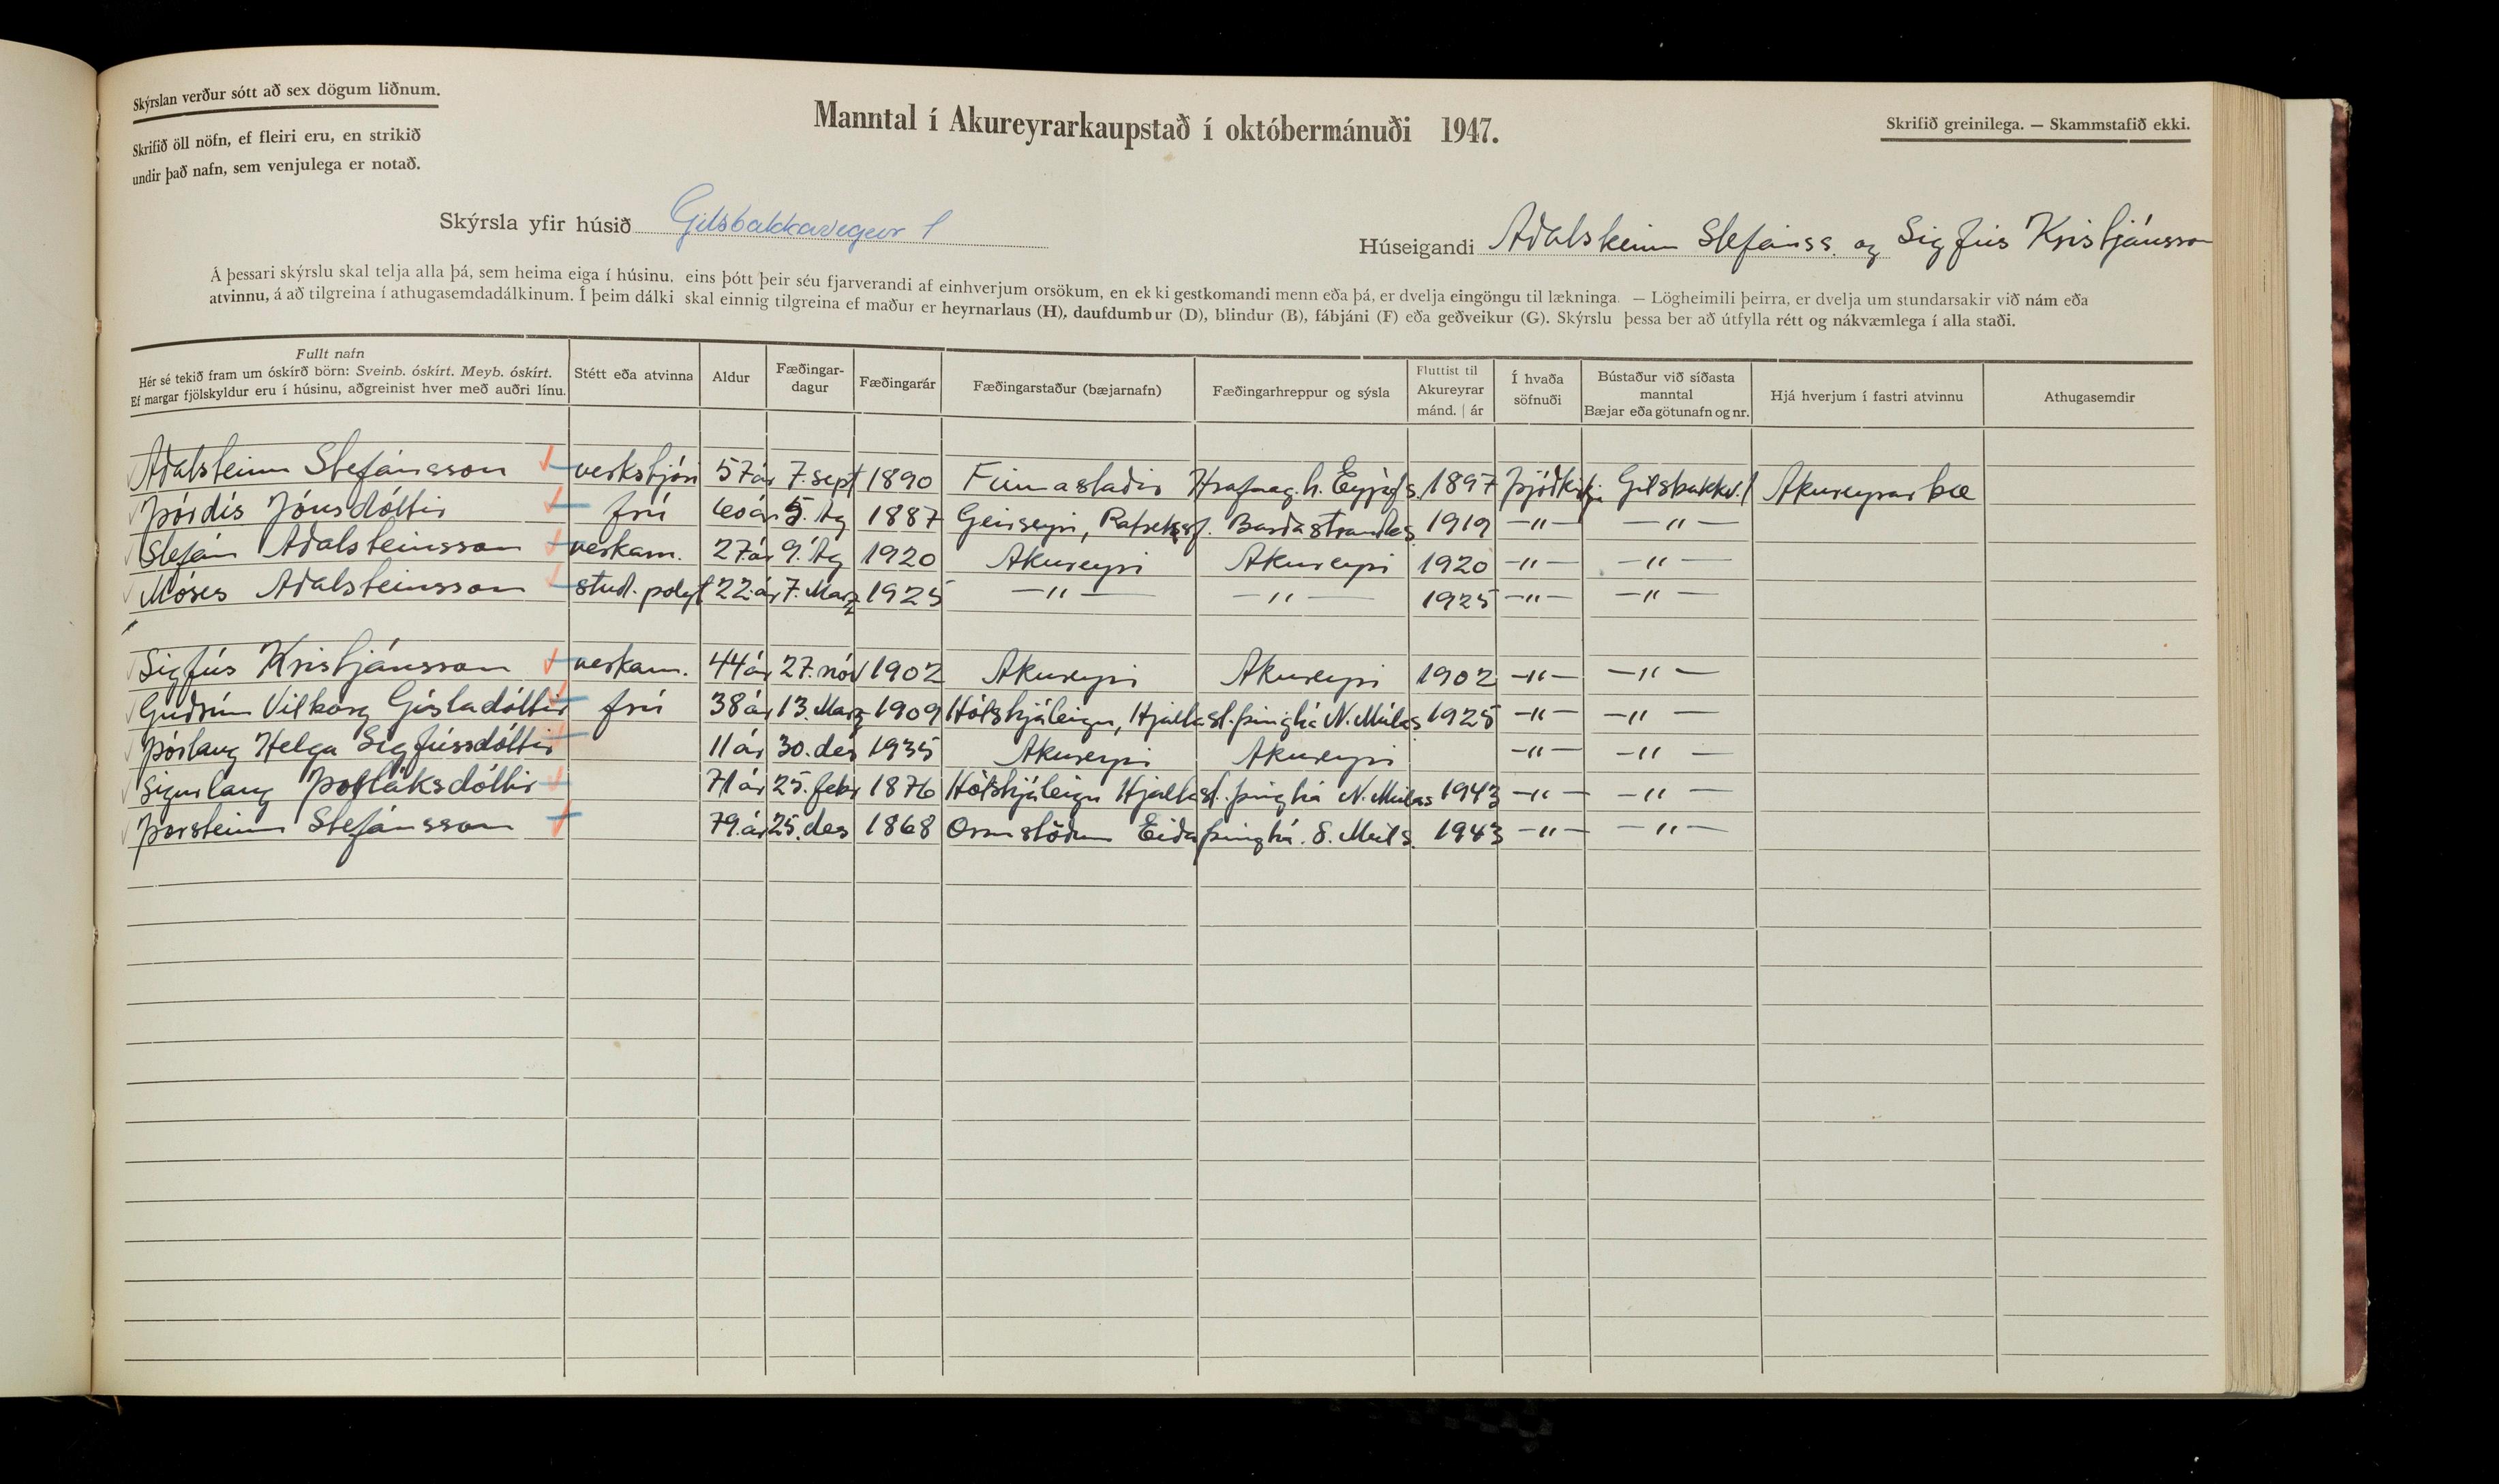 Skýrslan verður sótt að sex dögum liðnum.
Skrifið öll nöfn, ef fleiri eru, en strikið
undir það nafn, sem venjulega er notað.
Manntal í Akureyrarkaupstað í októbermánuði 1947.
Skrifið greinilega. — Skammstafið ekki.
Skýrsla yfir húsið Gilsbakkavegur 1
Húseigandi Aðalsteinn Stefánss. og Sigfús Kristjánsson
Á þessari skýrslu skal telja alla þá, sem heima eiga í húsinu, eins þótt þeir séu fjarverandi af einhverjum orsökum, en ekki gestkomandi menn eða þá, er dvelja eingöngu til lækninga. — Lögheimili þeirra, er dvelja um stundarsakir við nám eða
atvinnu, á að tilgreina í athugasemdadálkinum. Í þeim dálki skal einnig tilgreina ef maður er heyrnarlaus (H), daufdumbur (D), blindur (B), fábjáni (F) eða geðveikur (G). Skýrslu þessa ber að útfylla rétt og nákvæmlega í alla staði.
Fullt nafn
Hér sé tekið fram um óskírð börn: Sveinb. óskírt. Meyb. óskírt.
Ef margar fjölskyldur eru í húsinu, aðgreinist hver með auðri línu.
Stétt eða atvinna
Aldur
Fæðingar-
dagur
Fæðingarár
Fæðingarstaður (bæjarnafn)
Fæðingarhreppur og sýsla
Fluttist til
Akureyrar
mánd. | ár
Í hvaða
söfnuði
Bústaður við síðasta
manntal
Bæjar eða götunafn og nr.
Hjá hverjum í fastri atvinnu
Athugasemdir
Aðalsteinn Stefánsson verkstjóri 57 ár 7. sept 1890 Finnastaðir Hrafnag.h. Eyjafs. 1897 Þjóðkirkju Gilsbakkv. 1 Akureyrarbæ
Þórdís Jónsdóttir frú 60 ár 5. Ág 1887 Geirseyri, Patreksf. Barðastrandas. 1919 —"— —"—
Stefán Aðalsteinsson verkam. 27 ár 9. Ág 1920 Akureyri Akureyri 1920 —"— —"—
Móses Aðalsteinsson stud. polyt 22 ár 7. Marz 1925 —"— —"— 1925 —"— —"—
Sigfús Kristjánsson verkam. 44 ár 27. nóv 1902 Akureyri Akureyri 1902 —"— —"—
Guðrún Vilborg Gísladóttir frú 38 ár 13. Marz 1909 Hólshjáleigu, Hjaltast.þinghá N. Múlas 1925 —"— —"—
Þórlaug Helga Sigfúsdóttir 11 ár 30. des 1935 Akureyri Akureyri —"— —"—
Sigurlaug Þorláksdóttir 71 ár 25. febr 1876 Hólshjáleigu Hjaltast.þinghá N. Múlas 1943 —"— —"—
Þorsteinn Stefánsson 79. ár 25. des 1868 Ormstöðum Eiðaþinghá. S. Múls. 1943 —"— —"—